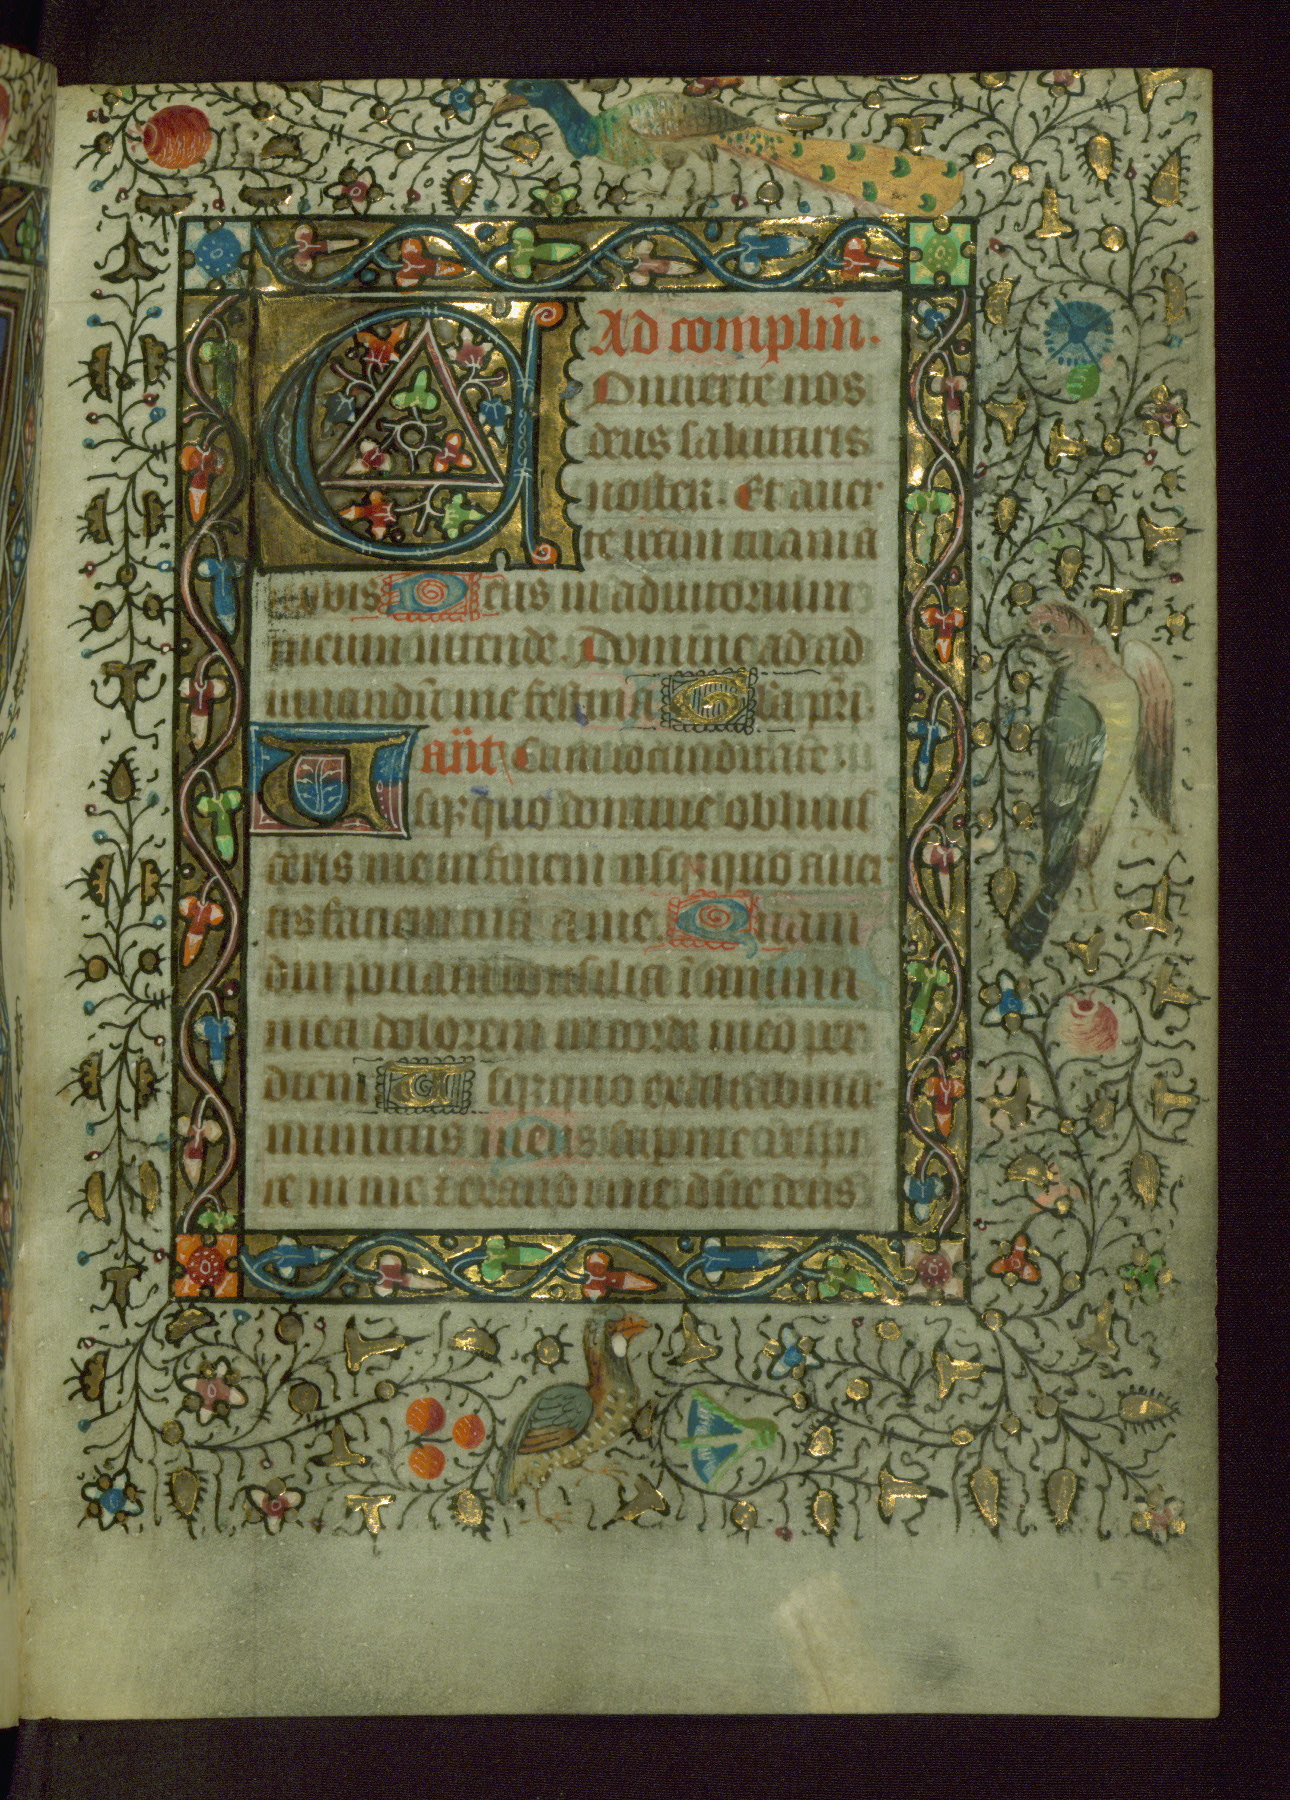 Ad complin̄.
COnuerte nos
deus salutaris
noster. Et auer
te iram tuam a
nobis Deus in adiutorium
meum intende. Domine ad ad
iuuandū me festina Gl'a pr̄i.
an̄t. Cum iocunditate
Usq₃ quo domine obliuis
ceris me in finem usq₃ quo auer
tis faciem tuā a me. Quam
diu ponam consilia ī anima
mea dolorem in corde meo per
diem Usq₃ quo exaltabitur
inimicus meus sup me respi
ce in me ⁊ exaudi me dn̄e deus
156